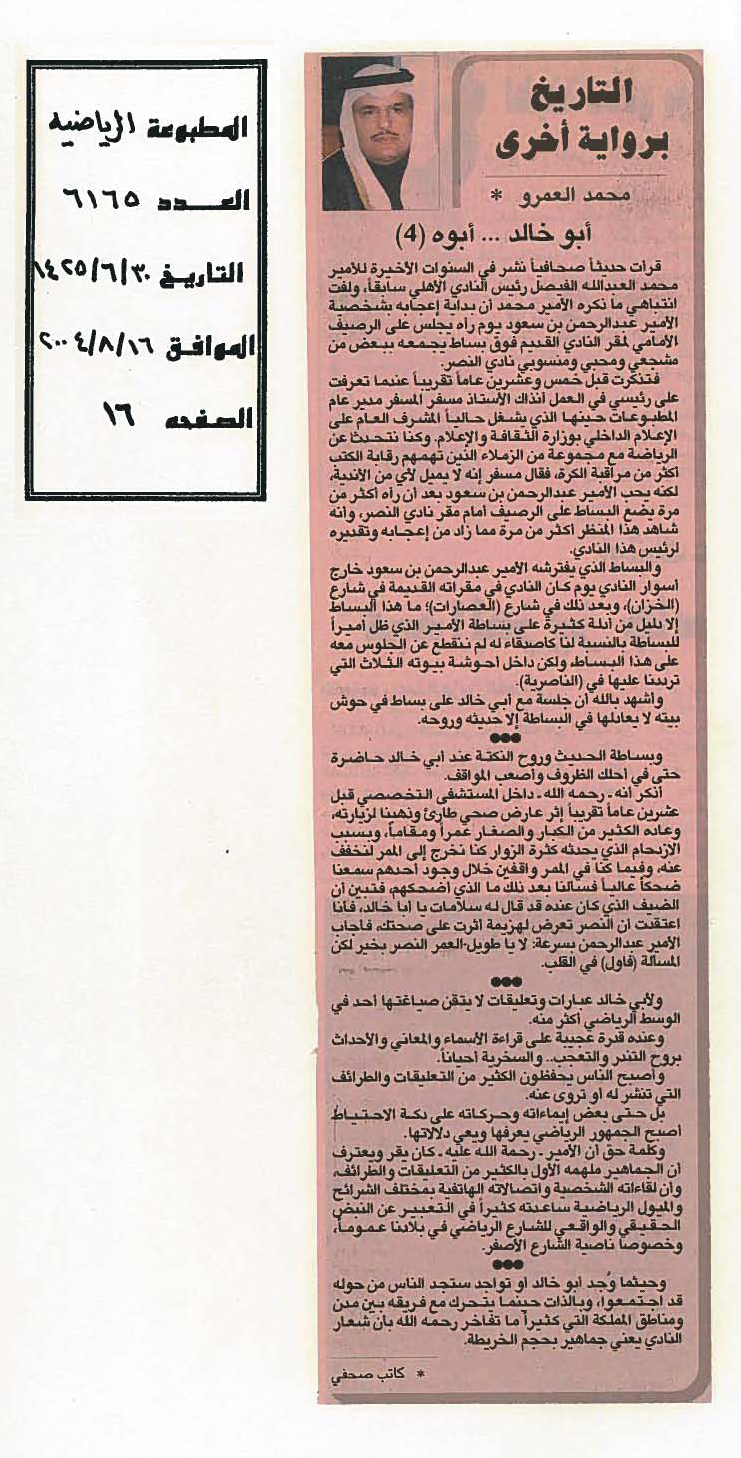 المطبوعة الرياضيه
العدد ٦١٦٥
التاريخ ١٤٢٥/٦/٣٠
الموافق ٢٠٠٤/٨/١٦
الصفحه ١٦
التاريخ
برواية أخرى
محمد العمرو *
أبو خالد ... أبوه (4)
قرأت حديثاً صحافياً نشر في السنوات الأخيرة للأمير
محمد العبدالله الفيصل رئيس النادي الأهلي سابقاً، ولفت
انتباهي ما ذكره الأمير محمد أن بداية إعجابه بشخصية
الأمير عبدالرحمن بن سعود يوم رآه يجلس على الرصيف
الأمامي لمقر النادي القديم فوق بساط يجمعه ببعض من
مشجعي ومحبي ومنسوبي نادي النصر.
فتذكرت قبل خمس وعشرين عاماً تقريباً عندما تعرفت
على رئيسي في العمل آنذاك الأستاذ مسفر المسفر مدير عام
المطبوعات حينها الذي يشغل حالياً المشرف العام على
الإعلام الداخلي بوزارة الثقافة والإعلام. وكنا نتحدث عن
الرياضة مع مجموعة من الزملاء الذين تهمهم رقابة الكتب
أكثر من مراقبة الكرة، فقال مسفر إنه لا يميل لأي من الأندية،
لكنه يحب الأمير عبدالرحمن بن سعود بعد أن رآه أكثر من
مرة يضع البساط على الرصيف أمام مقر نادي النصر، وأنه
شاهد هذا المنظر أكثر من مرة مما زاد من إعجابه وتقديره
لرئيس هذا النادي.
والبساط الذي يفترشه الأمير عبدالرحمن بن سعود خارج
أسوار النادي يوم كان النادي في مقراته القديمة في شارع
(الخزان)، وبعد ذلك في شارع (العصارات)؛ ما هذا البساط
إلا دليل من أدلة كثيرة على بساطة الأمير الذي ظل أميراً
للبساطة بالنسبة لنا كأصدقاء له لم ننقطع عن الجلوس معه
على هذا البساط، ولكن داخل أحوشة بيوته الثلاث التي
ترددنا عليها في (الناصرية).
وأشهد بالله أن جلسة مع أبي خالد على بساط في حوش
بيته لا يعادلها في البساطة إلا حديثه وروحه.
●●●
وبساطة الحديث وروح النكتة عند أبي خالد حاضرة
حتى في أحلك الظروف وأصعب المواقف.
أذكر أنه ـ رحمه الله ـ داخل المستشفى التخصصي قبل
عشرين عاماً تقريباً إثر عارض صحي طارئ وذهبنا لزيارته،
وعاده الكثير من الكبار والصغار عمراً ومقاماً، وبسبب
الازدحام الذي يحدثه كثرة الزوار كنا نخرج إلى الممر لنخفف
عنه، وفيما كنا في الممر واقفين خلال وجود أحدهم سمعنا
ضحكاً عالياً فسألنا بعد ذلك ما الذي أضحكهم، فتبين أن
الضيف الذي كان عنده قد قال له سلامات يا أبا خالد، فأنا
اعتقدت أن النصر تعرض لهزيمة أثرت على صحتك، فأجاب
الأمير عبدالرحمن بسرعة: لا يا طويل-العمر النصر بخير لكن
المسألة (فاول) في القلب.
●●●
ولأبي خالد عبارات وتعليقات لا يتقن صياغتها أحد في
الوسط الرياضي أكثر منه.
وعنده قدرة عجيبة على قراءة الأسماء والمعاني والأحداث
بروح التندر والتعجب.. والسخرية أحياناً.
وأصبح الناس يحفظون الكثير من التعليقات والطرائف
التي تنشر له أو تروى عنه.
بل حتى بعض إيماءاته وحركاته على دكة الاحتياط
أصبح الجمهور الرياضي يعرفها ويعي دلالاتها.
وكلمة حق أن الأمير ـ رحمة الله عليه ـ كان يقر ويعترف
أن الجماهير ملهمه الأول بالكثير من التعليقات والطرائف،
وأن لقاءاته الشخصية واتصالاته الهاتفية بمختلف الشرائح
والميول الرياضية ساعدته كثيراً في التعبير عن النبض
الحقيقي والواقعي للشارع الرياضي في بلادنا عموماً،
وخصوصاً ناصية الشارع الأصفر.
●●●
وحيثما وُجد أبو خالد أو تواجد ستجد الناس من حوله
قد اجتمعوا، وبالذات حينما يتحرك مع فريقه بين مدن
ومناطق المملكة التي كثيراً ما تفاخر رحمه الله بأن شعار
النادي يعني جماهير بحجم الخريطة.
* كاتب صحفي